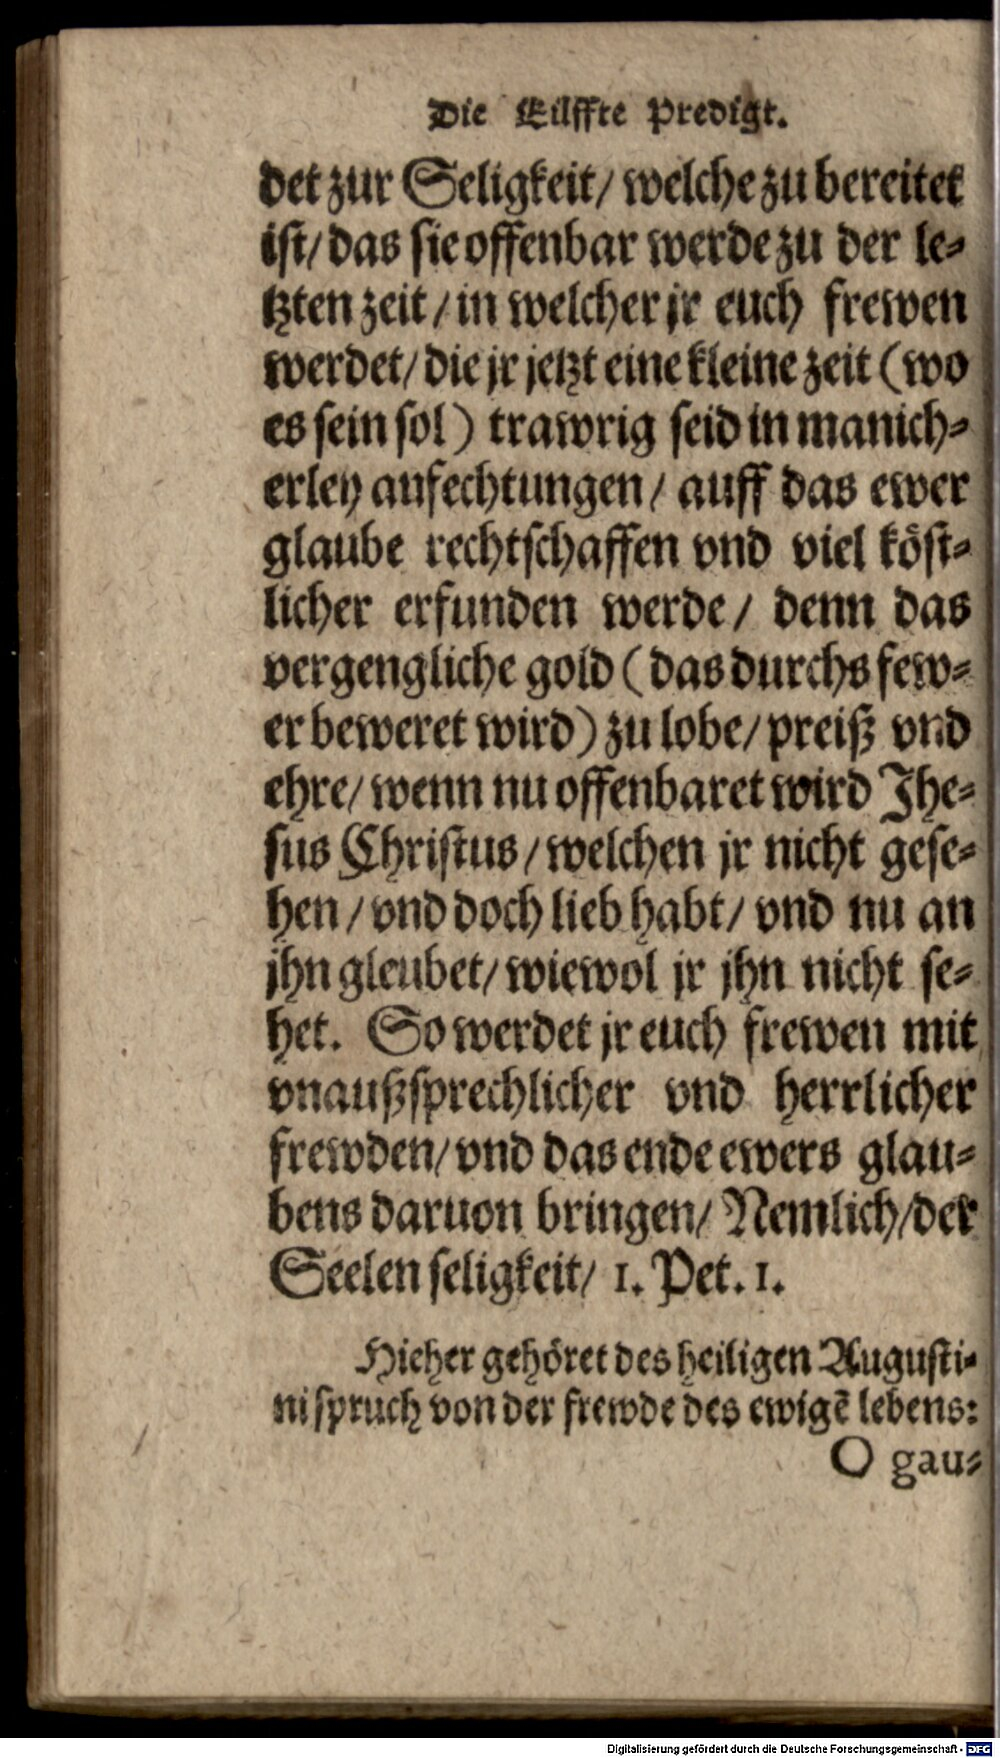 Die Eilffte Predigt.
det zur Seligkeit/ welche zu bereitet
ist/ das sie offenbar werde zu der le-
tzten zeit/ in welcher jr euch frewen
werdet/ die jr jetzt eine kleine zeit (wo
es sein sol) trawrig seid in manich-
erley anfechtungen/ auff das ewer
glaube rechtschaffen vnd viel köst-
licher erfunden werde/ denn das
vergengliche gold (das durchs few-
er beweret wird) zu lobe/ preiß vnd
ehre/ wenn nu offenbaret wird Jhe-
sus Christus/ welchen jr nicht gese-
hen/ vnd doch lieb habt/ vnd nu an
jhn gleubet/ wiewol jr jhn nicht se-
het. So werdet jr euch frewen mit
vnaußsprechlicher vnd herrlicher
frewden/ vnd das ende ewers glau-
bens daruon bringen/ Nemlich/ der
Seelen seligkeit/ 1. Pet. 1.
Hieher gehöret des heiligen Augusti-
ni spruch von der frewde des ewigẽ lebens:
O gau-
Digitalisierung gefördert durch die Deutsche Forschungsgemeinschaft - DFG